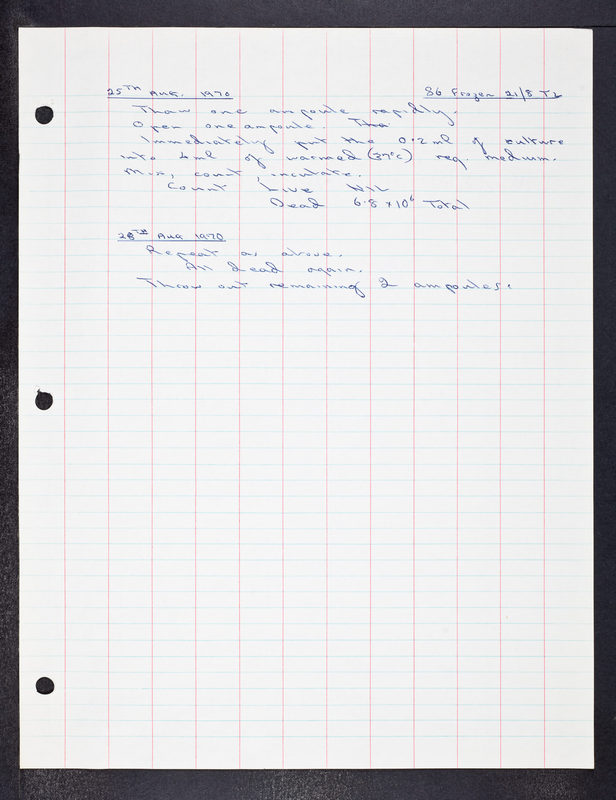 25TH Aug. 1970 S6 Frozen 21/8 T2
Thaw one ampoule rapidly
Open one ampoule. Tha
Immediately put the 0.2 ml of culture
into 4 ml of warmed (37°c) reg. medium.
Mix, count, incubate.
Count Live NIL
Dead 6.8 x 10⁶ Total
28TH Aug 1970
Repeat as above.
All dead again.
Throw out remaining 2 ampoules.